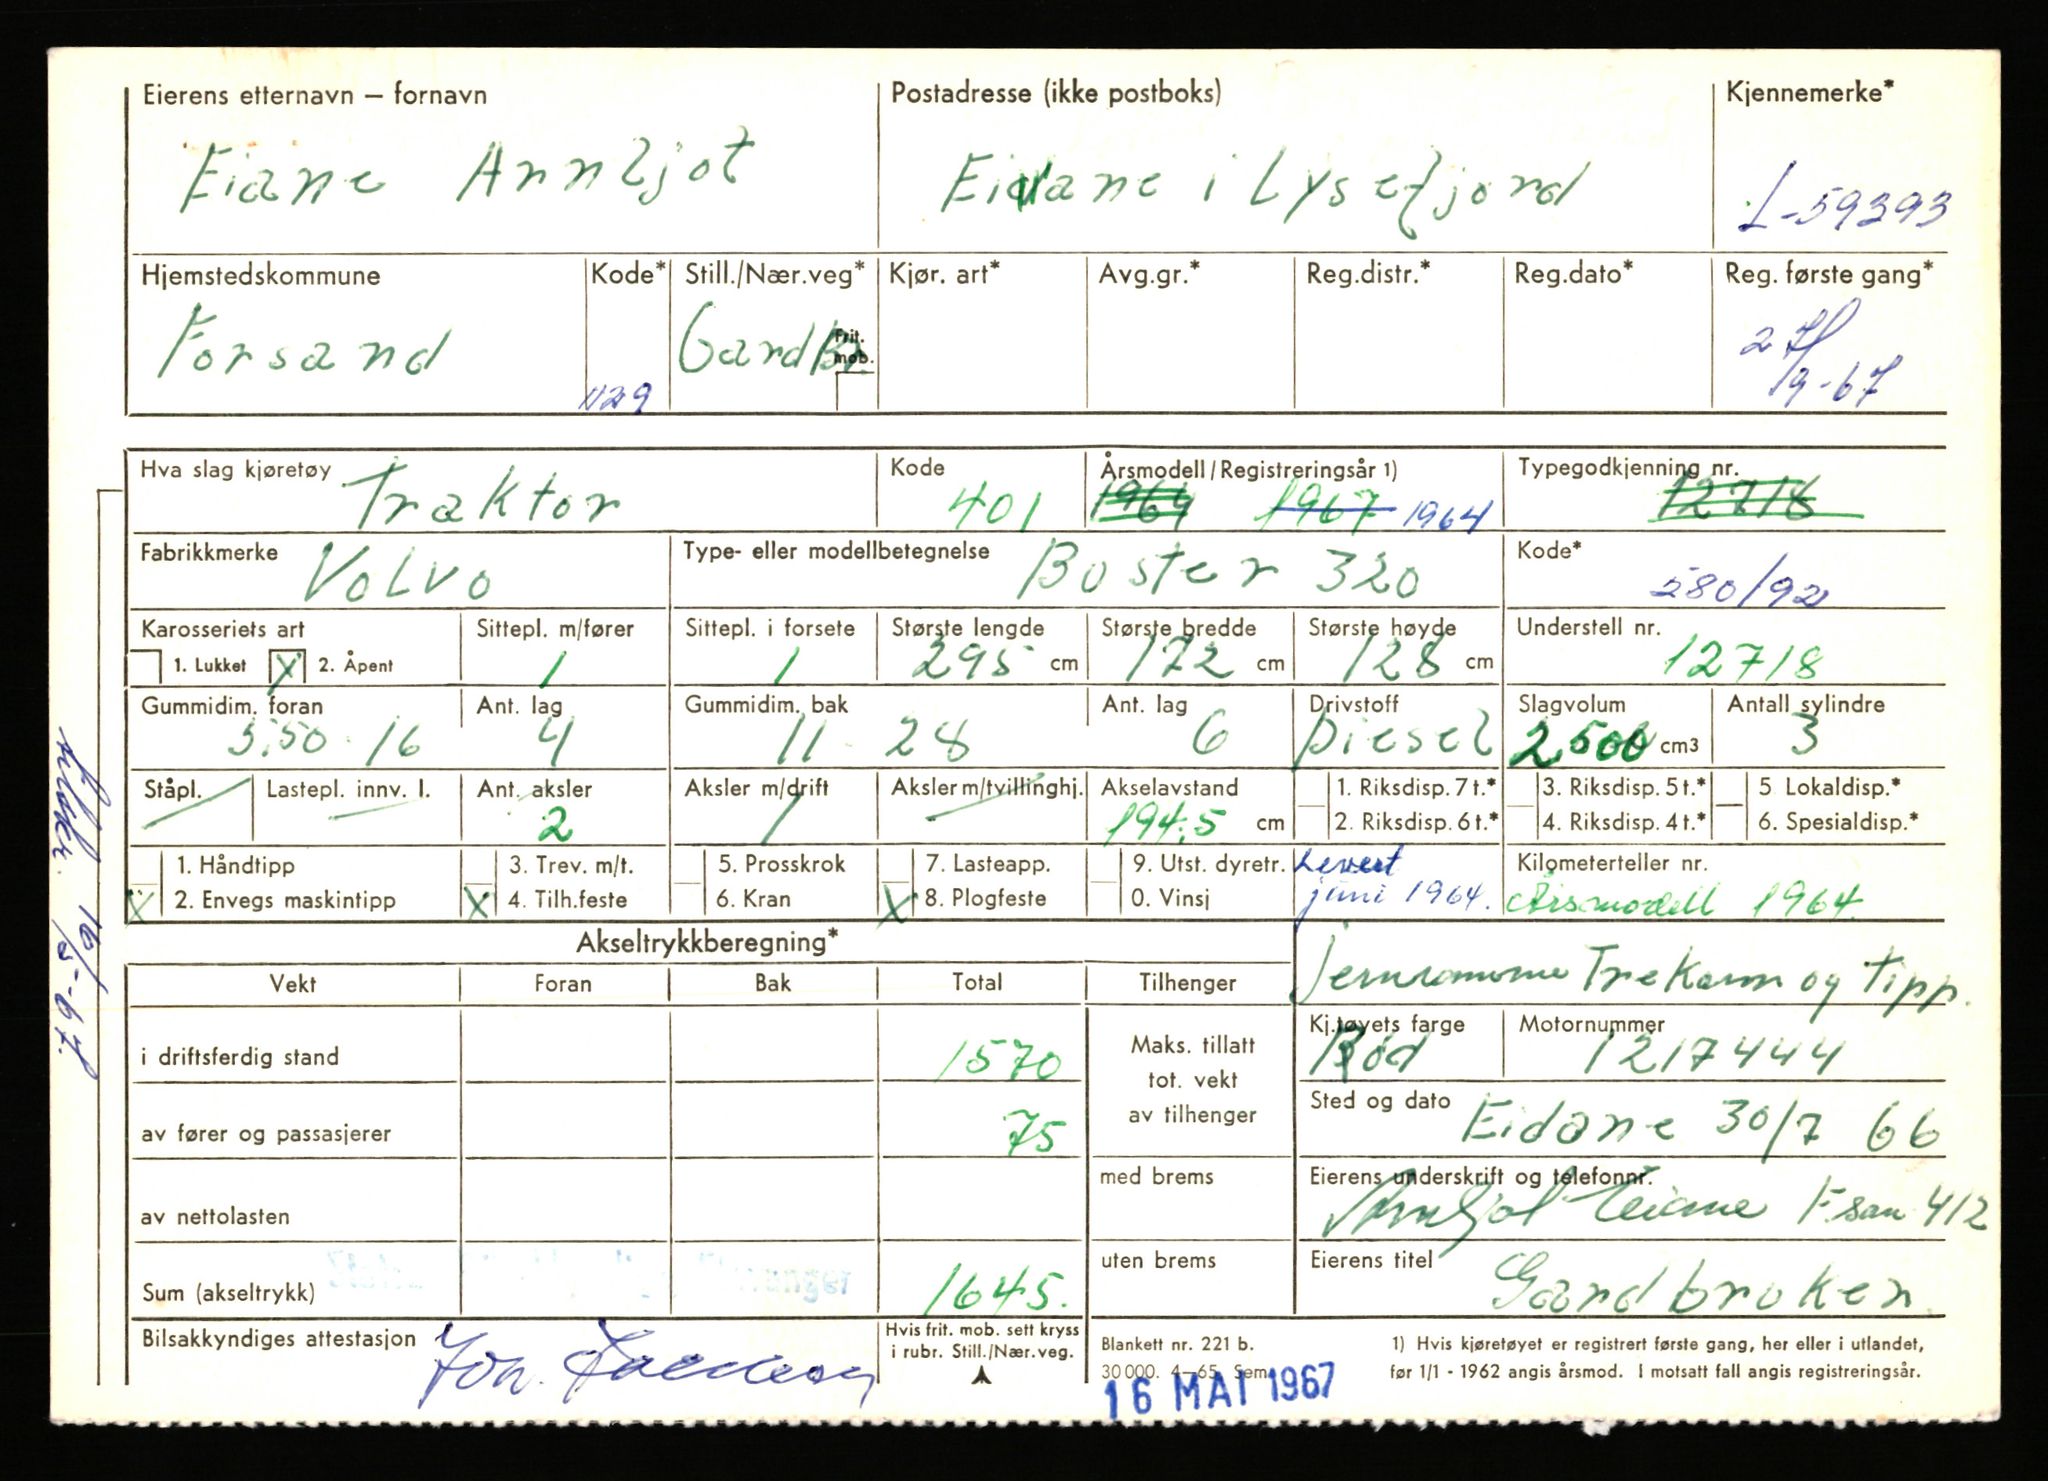 Eierens etternavn – fornavn Postadresse (ikke postboks) Kjennemerke*
Eiane Arnnljot Eidane i Lysefjord L-59393
Hjemstedskommune Kode* Still./Nær.veg* Kjør. art* Avg.gr.* Reg.distr.* Reg.dato* Reg. første gang*
Forsand 1129 Gardbr. Frit. mob. 27/9-67
Hva slag kjøretøy Kode Årsmodell/Registreringsår 1) Typegodkjenning nr.
Traktor 401 1964 1967 1964 12718
Fabrikkmerke Type- eller modellbetegnelse Kode*
Volvo Boster 320 580/92
Karosseriets art Sittepl. m/fører Sittepl. i forsete Største lengde Største bredde Største høyde Understell nr.
1. Lukket X 2. Åpent 1 1 295 cm 172 cm 128 cm 12718
Gummidim. foran Ant. lag Gummidim. bak Ant. lag Drivstoff Slagvolum Antall sylindre
5.50 16 4 11 28 6 Diesel 2500 cm3 3
Ståpl. Lastepl. innv. l. Ant. aksler Aksler m/drift Aksler m/tvillinghj. Akselavstand 1. Riksdisp. 7 t.* 3. Riksdisp. 5 t.* 5 Lokaldisp.*
2 1 194.5 cm 2. Riksdisp. 6 t.* 4. Riksdisp. 4 t.* 6. Spesialdisp.*
1. Håndtipp 3. Trev. m/t. 5. Prosskrok 7. Lasteapp. 9. Utst. dyretr. Levert Kilometerteller nr.
X 2. Envegs maskintipp X 4. Tilh.feste 6. Kran X 8. Plogfeste 0. Vinsj juni 1964. Årsmodell 1964.
Akseltrykkberegning*
jernramme Trekarm og tipp.
Vekt Foran Bak Total Tilhenger
Kj.tøyets farge Motornummer
i driftsferdig stand 1570 Maks. tillatt Rød 1217444
tot. vekt
Sted og dato Eidane 30/7 66
av fører og passasjerer 75 av tilhenger
med brems Eierens underskrift og telefonnr.
av nettolasten Arnljot Eiane F.san 412
uten brems Eierens titel
Sum (akseltrykk) 1645. Gardbruker.
Bilsakkyndiges attestasjon Hvis frit. mob. sett kryss i rubr. Still./Nær.veg.
Blankett nr. 221 b. 1) Hvis kjøretøyet er registrert første gang, her eller i utlandet,
30 000. 4–65. Sem før 1/1 - 1962 angis årsmod. I motsatt fall angis registreringsår.
16 MAI 1967
16/5-67.